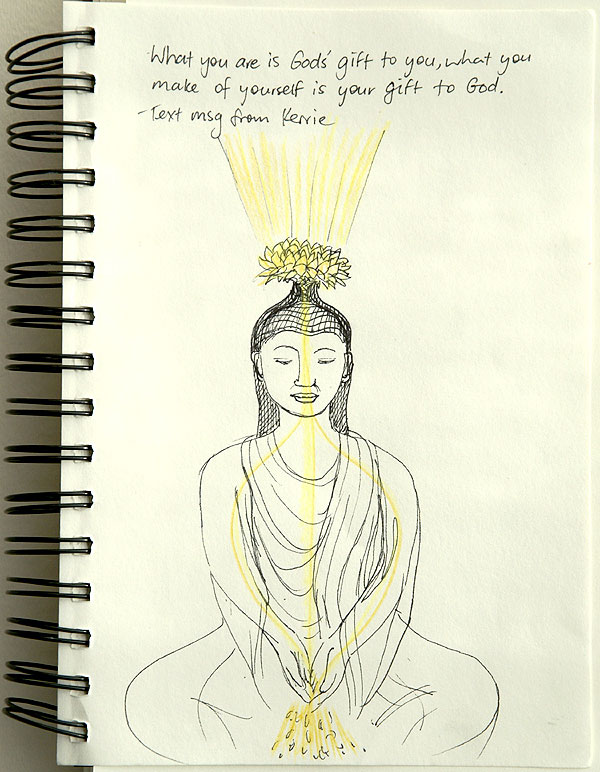 What you are is Gods' gift to you, what you
make of yourself is your gift to God.
-Text msg from Kerrie